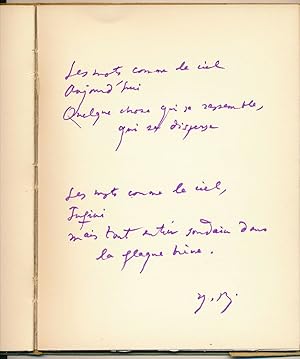 Les mots comme le ciel
Aujourd'hui
Quelque chose qui se rassemble,
qui se disperse
Les mots comme le ciel,
Infini
mais tout entier soudain dans
la flaque brève.
Y. B.